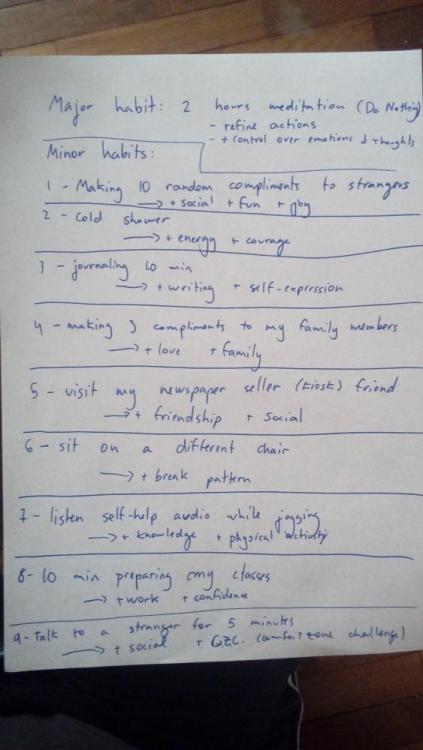 Major habit: 2 hours meditation (Do Nothing)
- refine actions
- + control over emotions & thoughts
Minor habits:
1 - Making 10 random compliments to strangers
→ + social + fun + joy
2 - cold shower
→ + energy + courage
3 - journaling 10 min
→ + writing + self-expression
4 - making 3 compliments to my family members
→ + love + family
5 - visit my newspaper seller (kiosk) friend
→ + friendship + social
6 - sit on a different chair
→ + break pattern
7 - listen self-help audio while jogging
→ + knowledge + physical activity
8 - 10 min preparing my classes
→ + work + confidence
9 - talk to a stranger for 5 minutes
→ + social + (comfort zone challenge)